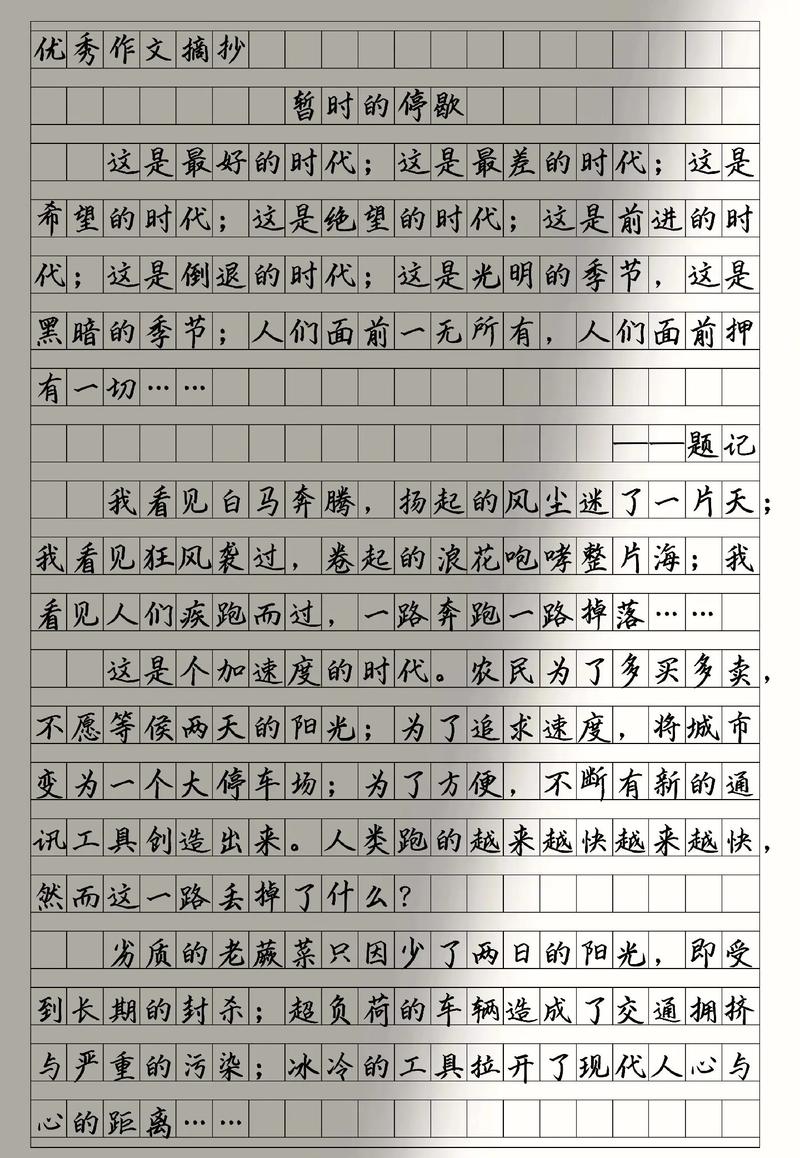 优秀作文摘抄
暂时的停歇
这是最好的时代；这是最差的时代；这是
希望的时代；这是绝望的时代；这是前进的时
代；这是倒退的时代；这是光明的季节，这是
黑暗的季节；人们面前一无所有，人们面前押
有一切……
——题记
我看见白马奔腾，扬起的风尘迷了一片天；
我看见狂风袭过，卷起的浪花咆哮整片海；我
看见人们疾跑而过，一路奔跑一路掉落……
这是个加速度的时代。农民为了多买多卖，
不愿等侯两天的阳光；为了追求速度，将城市
变为一个大停车场；为了方便，不断有新的通
讯工具创造出来。人类跑的越来越快越来越快，
然而这一路丢掉了什么？
劣质的老蕨菜只因少了两日的阳光，即受
到长期的封杀；超负荷的车辆造成了交通拥挤
与严重的污染；冰冷的工具拉开了现代人心与
心的距离……